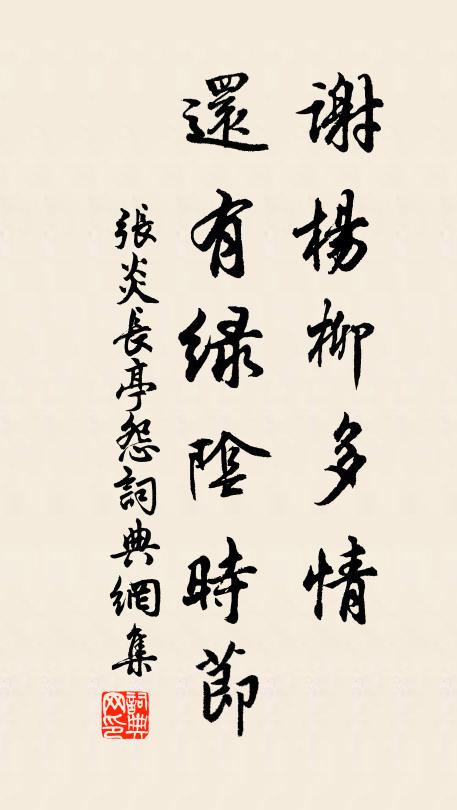 謝楊柳多情
還有綠陰時節
張炎長亭怨詞典網集
詞典網印